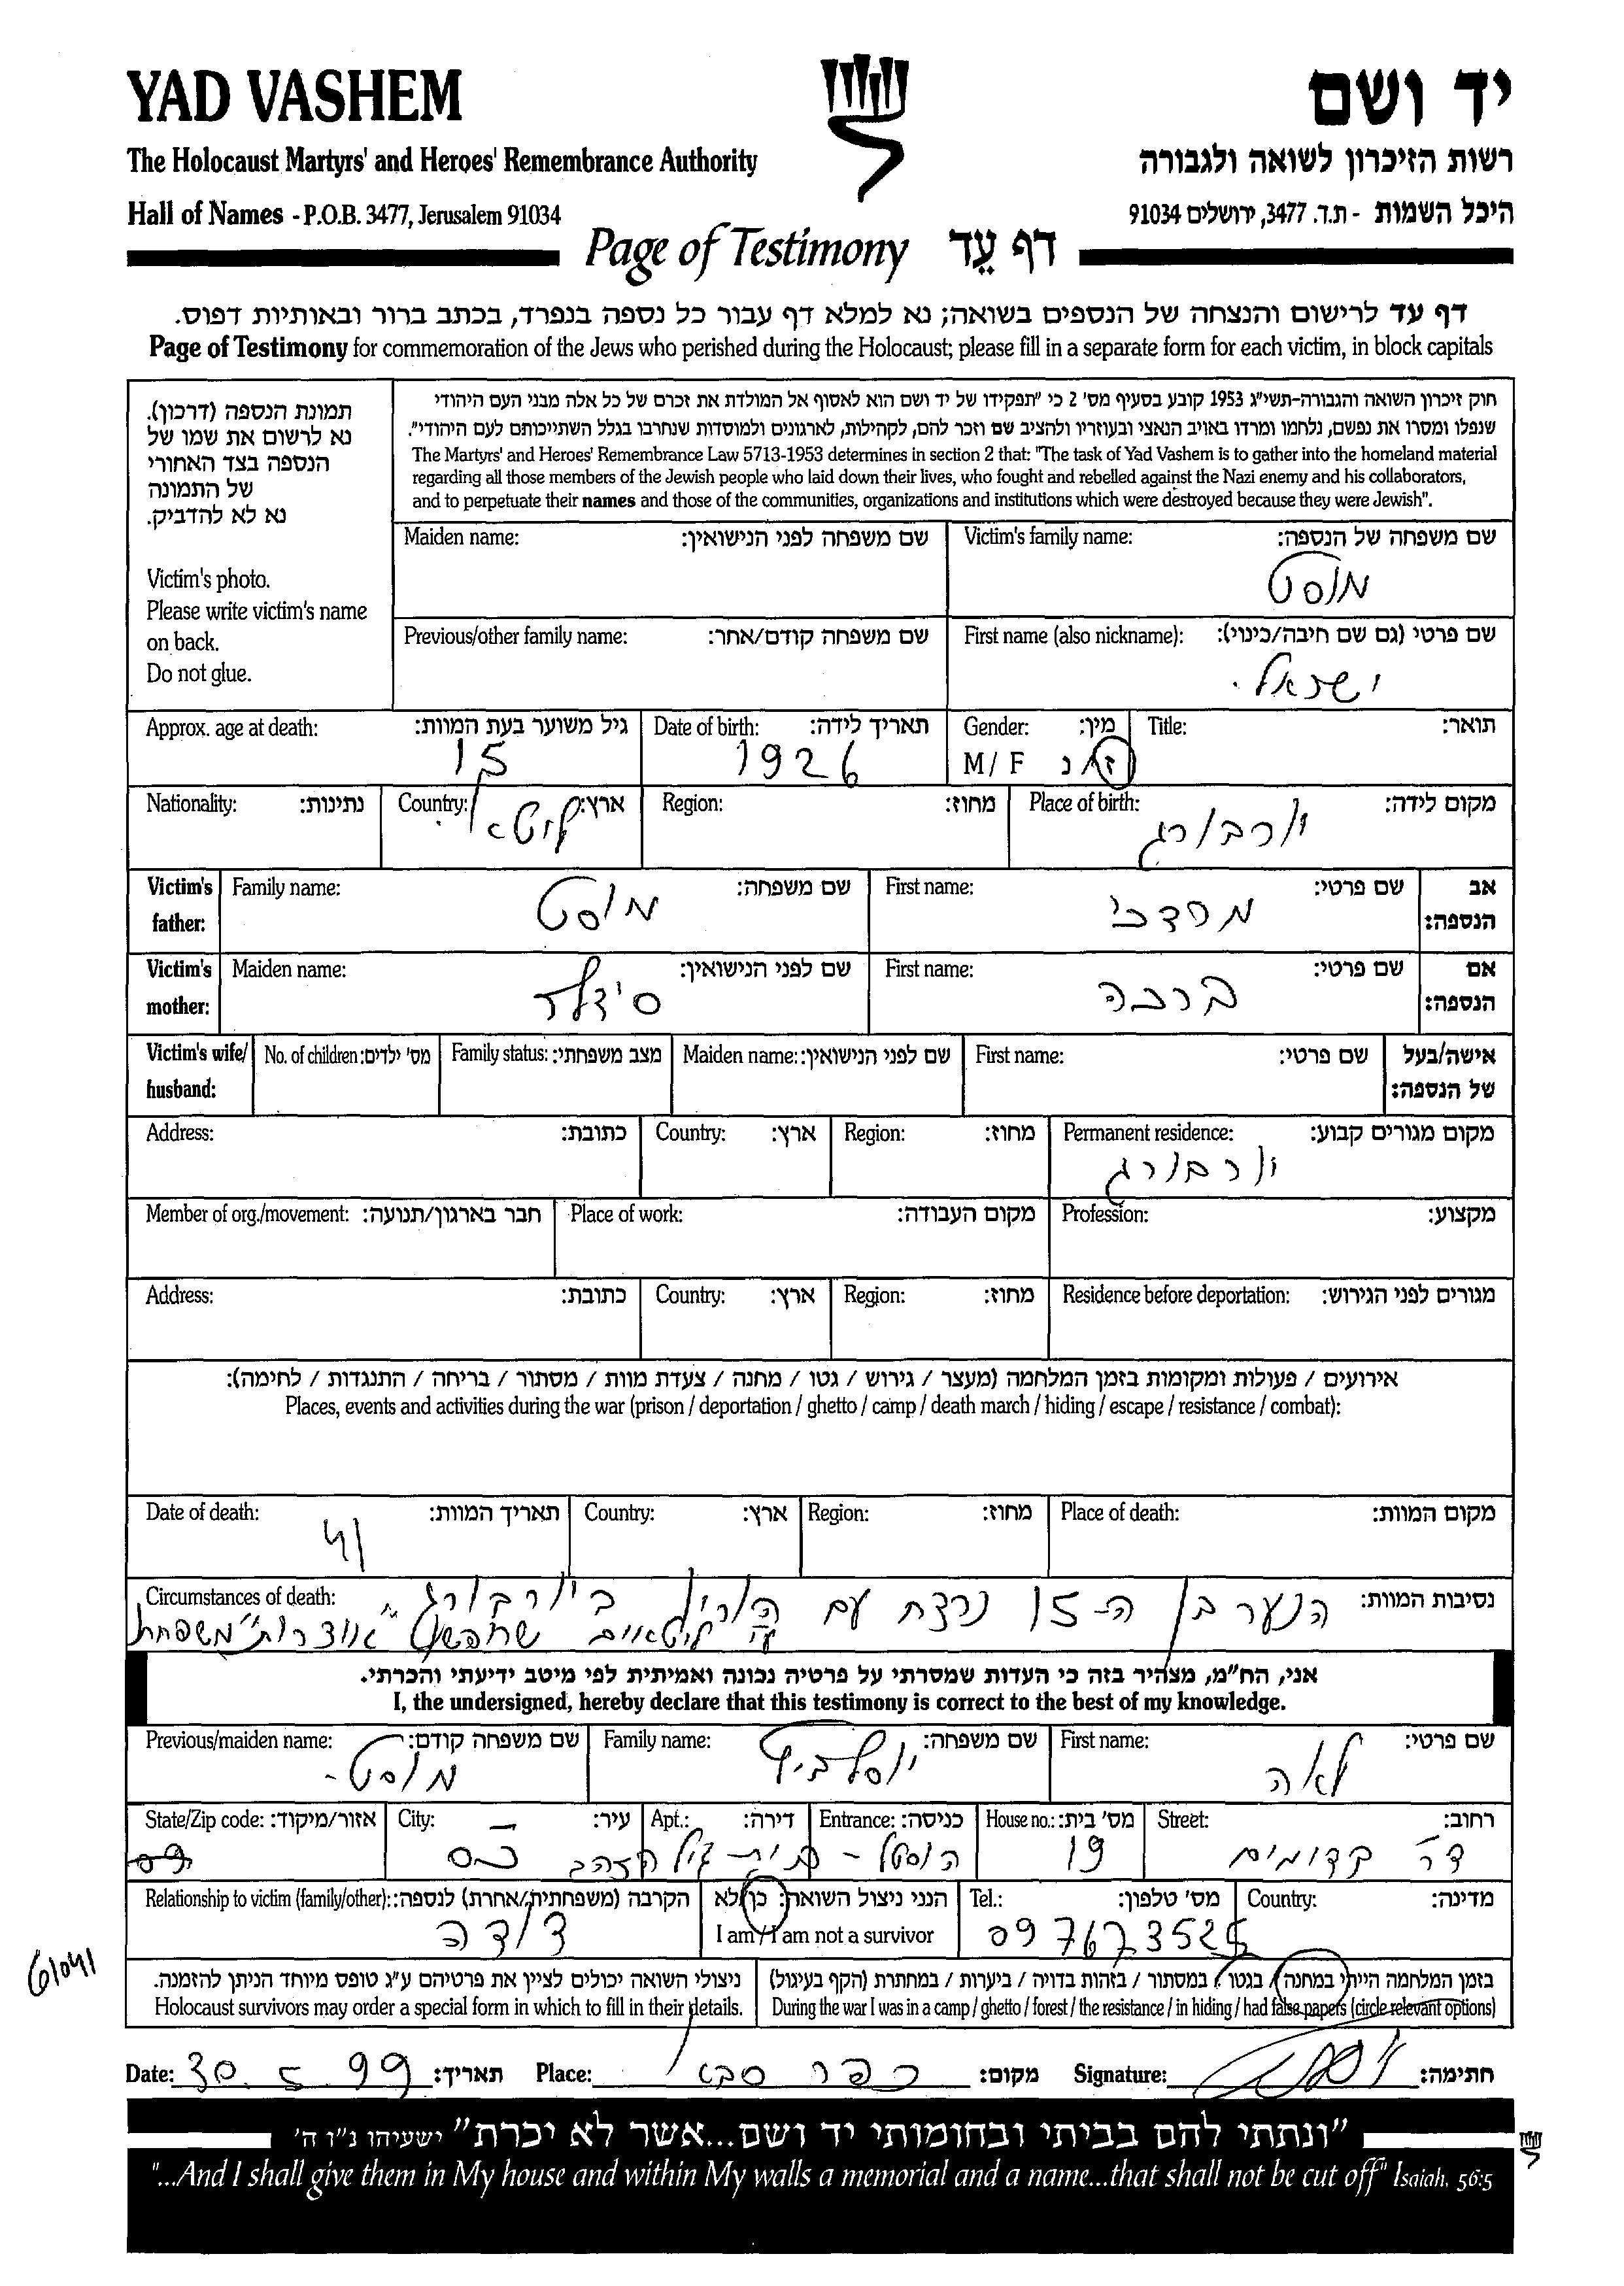 YAD VASHEM
יד ושם
The Holocaust Martyrs' and Heroes' Remembrance Authority
רשות הזיכרון לשואה ולגבורה
Hall of Names - P.O.B. 3477, Jerusalem 91034
היכל השמות - ת.ד. 3477, ירושלים 91034
Page of Testimony דף עֵד
דף עד לרישום והנצחה של הנספים בשואה; נא למלא דף עבור כל נספה בנפרד, בכתב ברור ובאותיות דפוס.
Page of Testimony for commemoration of the Jews who perished during the Holocaust; please fill in a separate form for each victim, in block capitals
תמונת הנספה (דרכון).
נא לרשום את שמו של
הנספה בצד האחורי
של התמונה
נא לא להדביק.
Victim's photo.
Please write victim's name
on back.
Do not glue.
חוק זיכרון השואה והגבורה-תשי"ג 1953 קובע בסעיף מס' 2 כי "תפקידו של יד ושם הוא לאסוף אל המולדת את זכרם של כל אלה מבני העם היהודי
שנפלו ומסרו את נפשם, נלחמו ומרדו באויב הנאצי ובעוזריו ולהציב שם וזכר להם, לקהילות, לארגונים ולמוסדות שנחרבו בגלל השתייכותם לעם היהודי".
The Martyrs' and Heroes' Remembrance Law 5713-1953 determines in section 2 that: "The task of Yad Vashem is to gather into the homeland material
regarding all those members of the Jewish people who laid down their lives, who fought and rebelled against the Nazi enemy and his collaborators,
and to perpetuate their names and those of the communities, organizations and institutions which were destroyed because they were Jewish".
Victim's family name: שם משפחה של הנספה:
מוסט
Maiden name: שם משפחה לפני הנישואין:
First name (also nickname): שם פרטי (גם שם חיבה/כינוי):
ישראל.
Previous/other family name: שם משפחה קודם/אחר:
Title: תואר:
Gender: מין:
M / F ז/נ
Date of birth: תאריך לידה:
1926
Approx. age at death: גיל משוער בעת המוות:
15
Place of birth: מקום לידה:
יורבורג
Region: מחוז:
Country: ארץ:
ליטא
Nationality: נתינות:
Victim's father: אב הנספה:
First name: שם פרטי:
מרדכי
Family name: שם משפחה:
מוסט
Victim's mother: אם הנספה:
First name: שם פרטי:
ברכה
Maiden name: שם לפני הנישואין:
סידלר
Victim's wife/ husband: אישה/בעל של הנספה:
First name: שם פרטי:
Maiden name: שם לפני הנישואין:
Family status: מצב משפחתי:
No. of children: מס' ילדים:
Permanent residence: מקום מגורים קבוע:
יורבורג
Region: מחוז:
Country: ארץ:
Address: כתובת:
Profession: מקצוע:
Place of work: מקום העבודה:
Member of org./movement: חבר בארגון/תנועה:
Residence before deportation: מגורים לפני הגירוש:
Region: מחוז:
Country: ארץ:
Address: כתובת:
אירועים / פעולות ומקומות בזמן המלחמה (מעצר / גירוש / גטו / מחנה / צעדת מוות / מסתור / בריחה / התנגדות / לחימה):
Places, events and activities during the war (prison / deportation / ghetto / camp / death march / hiding / escape / resistance / combat):
Place of death: מקום המוות:
Region: מחוז:
Country: ארץ:
Date of death: תאריך המוות:
41
Circumstances of death: נסיבות המוות:
הנער בן ה-15 נרצח עם הוריו ביורבורג
ליטאים שחפשו "אוצרות" משפחת
אני, הח"מ, מצהיר בזה כי העדות שמסרתי על פרטיה נכונה ואמיתית לפי מיטב ידיעתי והכרתי.
I, the undersigned, hereby declare that this testimony is correct to the best of my knowledge.
First name: שם פרטי:
לאה
Family name: שם משפחה:
יוסלביץ
Previous/maiden name: שם משפחה קודם:
מוסט
Street: רחוב:
דר' קדומים
House no.: מס' בית:
19
Entrance: כניסה: Apt.: דירה:
הוסטל - בית גיל הזהב
City: עיר:
כ"ס
State/Zip code: אזור/מיקוד:
09
Country: מדינה:
Tel.: מס' טלפון:
097673525
הנני ניצול השואה: כן/לא
I am / I am not a survivor
Relationship to victim (family/other): הקרבה (משפחתית/אחרת) לנספה:
דודה
61041
בזמן המלחמה הייתי במחנה / בגטו / במסתור / בזהות בדויה / ביערות / במחתרת (הקף בעיגול)
During the war I was in a camp / ghetto / forest / the resistance / in hiding / had false papers (circle relevant options)
ניצולי השואה יכולים לציין את פרטיהם ע"ג טופס מיוחד הניתן להזמנה.
Holocaust survivors may order a special form in which to fill in their details.
Date: 30.5.99 תאריך: Place: כפר סבא מקום: Signature: חתימה:
"ונתתי להם בביתי ובחומותי יד ושם...אשר לא יכרת" ישעיהו נ"ו ה'
"...And I shall give them in My house and within My walls a memorial and a name...that shall not be cut off" Isaiah, 56:5